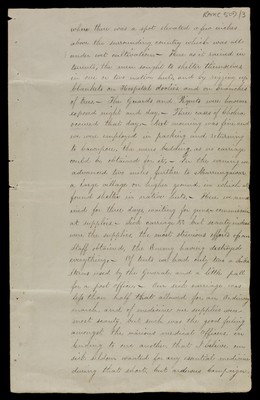 where there was a spot elevated a few inches
above the surrounding country which was all
under wet cultivation - Here as it rained in
torrents, the men sought to shelter themselves
in one or two native huts, and by rigging up
blankets on Hospital doolies and on branches
of trees - The Guards and Piquets were however
exposed night and day - Three cases of cholera
occurred that day - Next morning was fine and
we were employed in packing and returning
to Cawnpore, the mens bedding, as no carriage
could be obtained for it - In the evening we
advanced two miles further to
a large village on higher ground in which we
found shelter in native huts - Here we remained
for three days waiting for
of supplies - Such carriage as but scanty
were the supplies, the most strenuous efforts of our
Staff obtained, the Enemy having destroyed
everything - Of tents we had only two a
used by the General and a little pall
for a few officers - our sick carriage was
less than half that allowed for an ordinary
march, and of medicines our supplies were
most scanty, but such was the good feeling
amongst the various medical officers, in
lending to one another that I believe our
sick seldom wanted for any essential medicines
during that short, but arduous campaign,